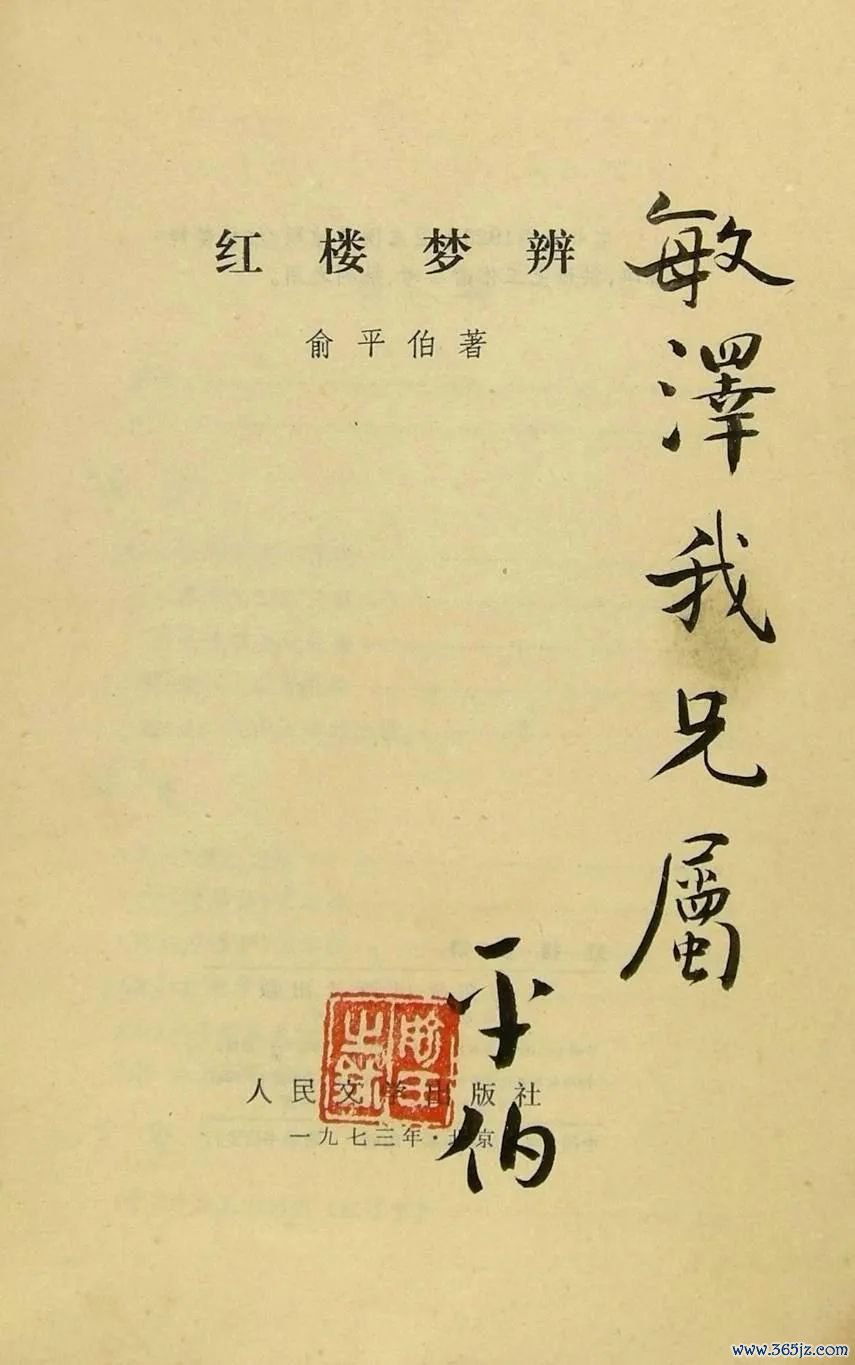 敏澤我兄屬
平伯
红楼梦辨
俞平伯著
人民文学出版社
一九七三年·北京
www.365jz.com